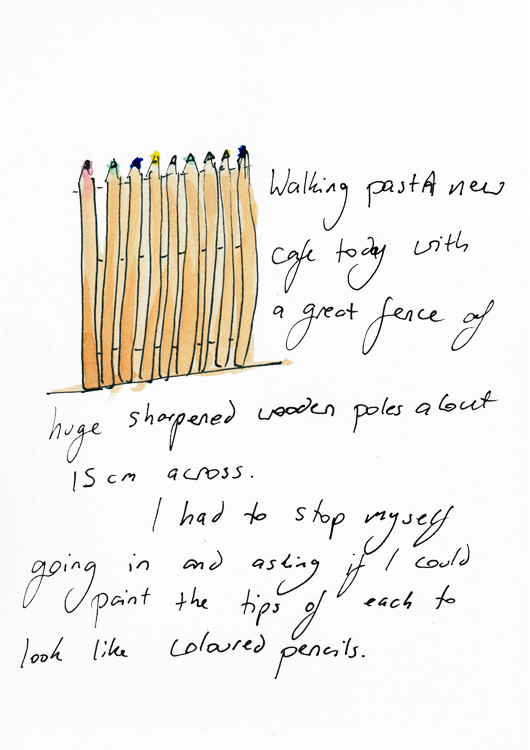 Walking past A new
cafe today with
a great fence of
huge sharpened wooden poles about
15cm across.
I had to stop myself
going in and asking if I could
paint the tips of each to
look like coloured pencils.